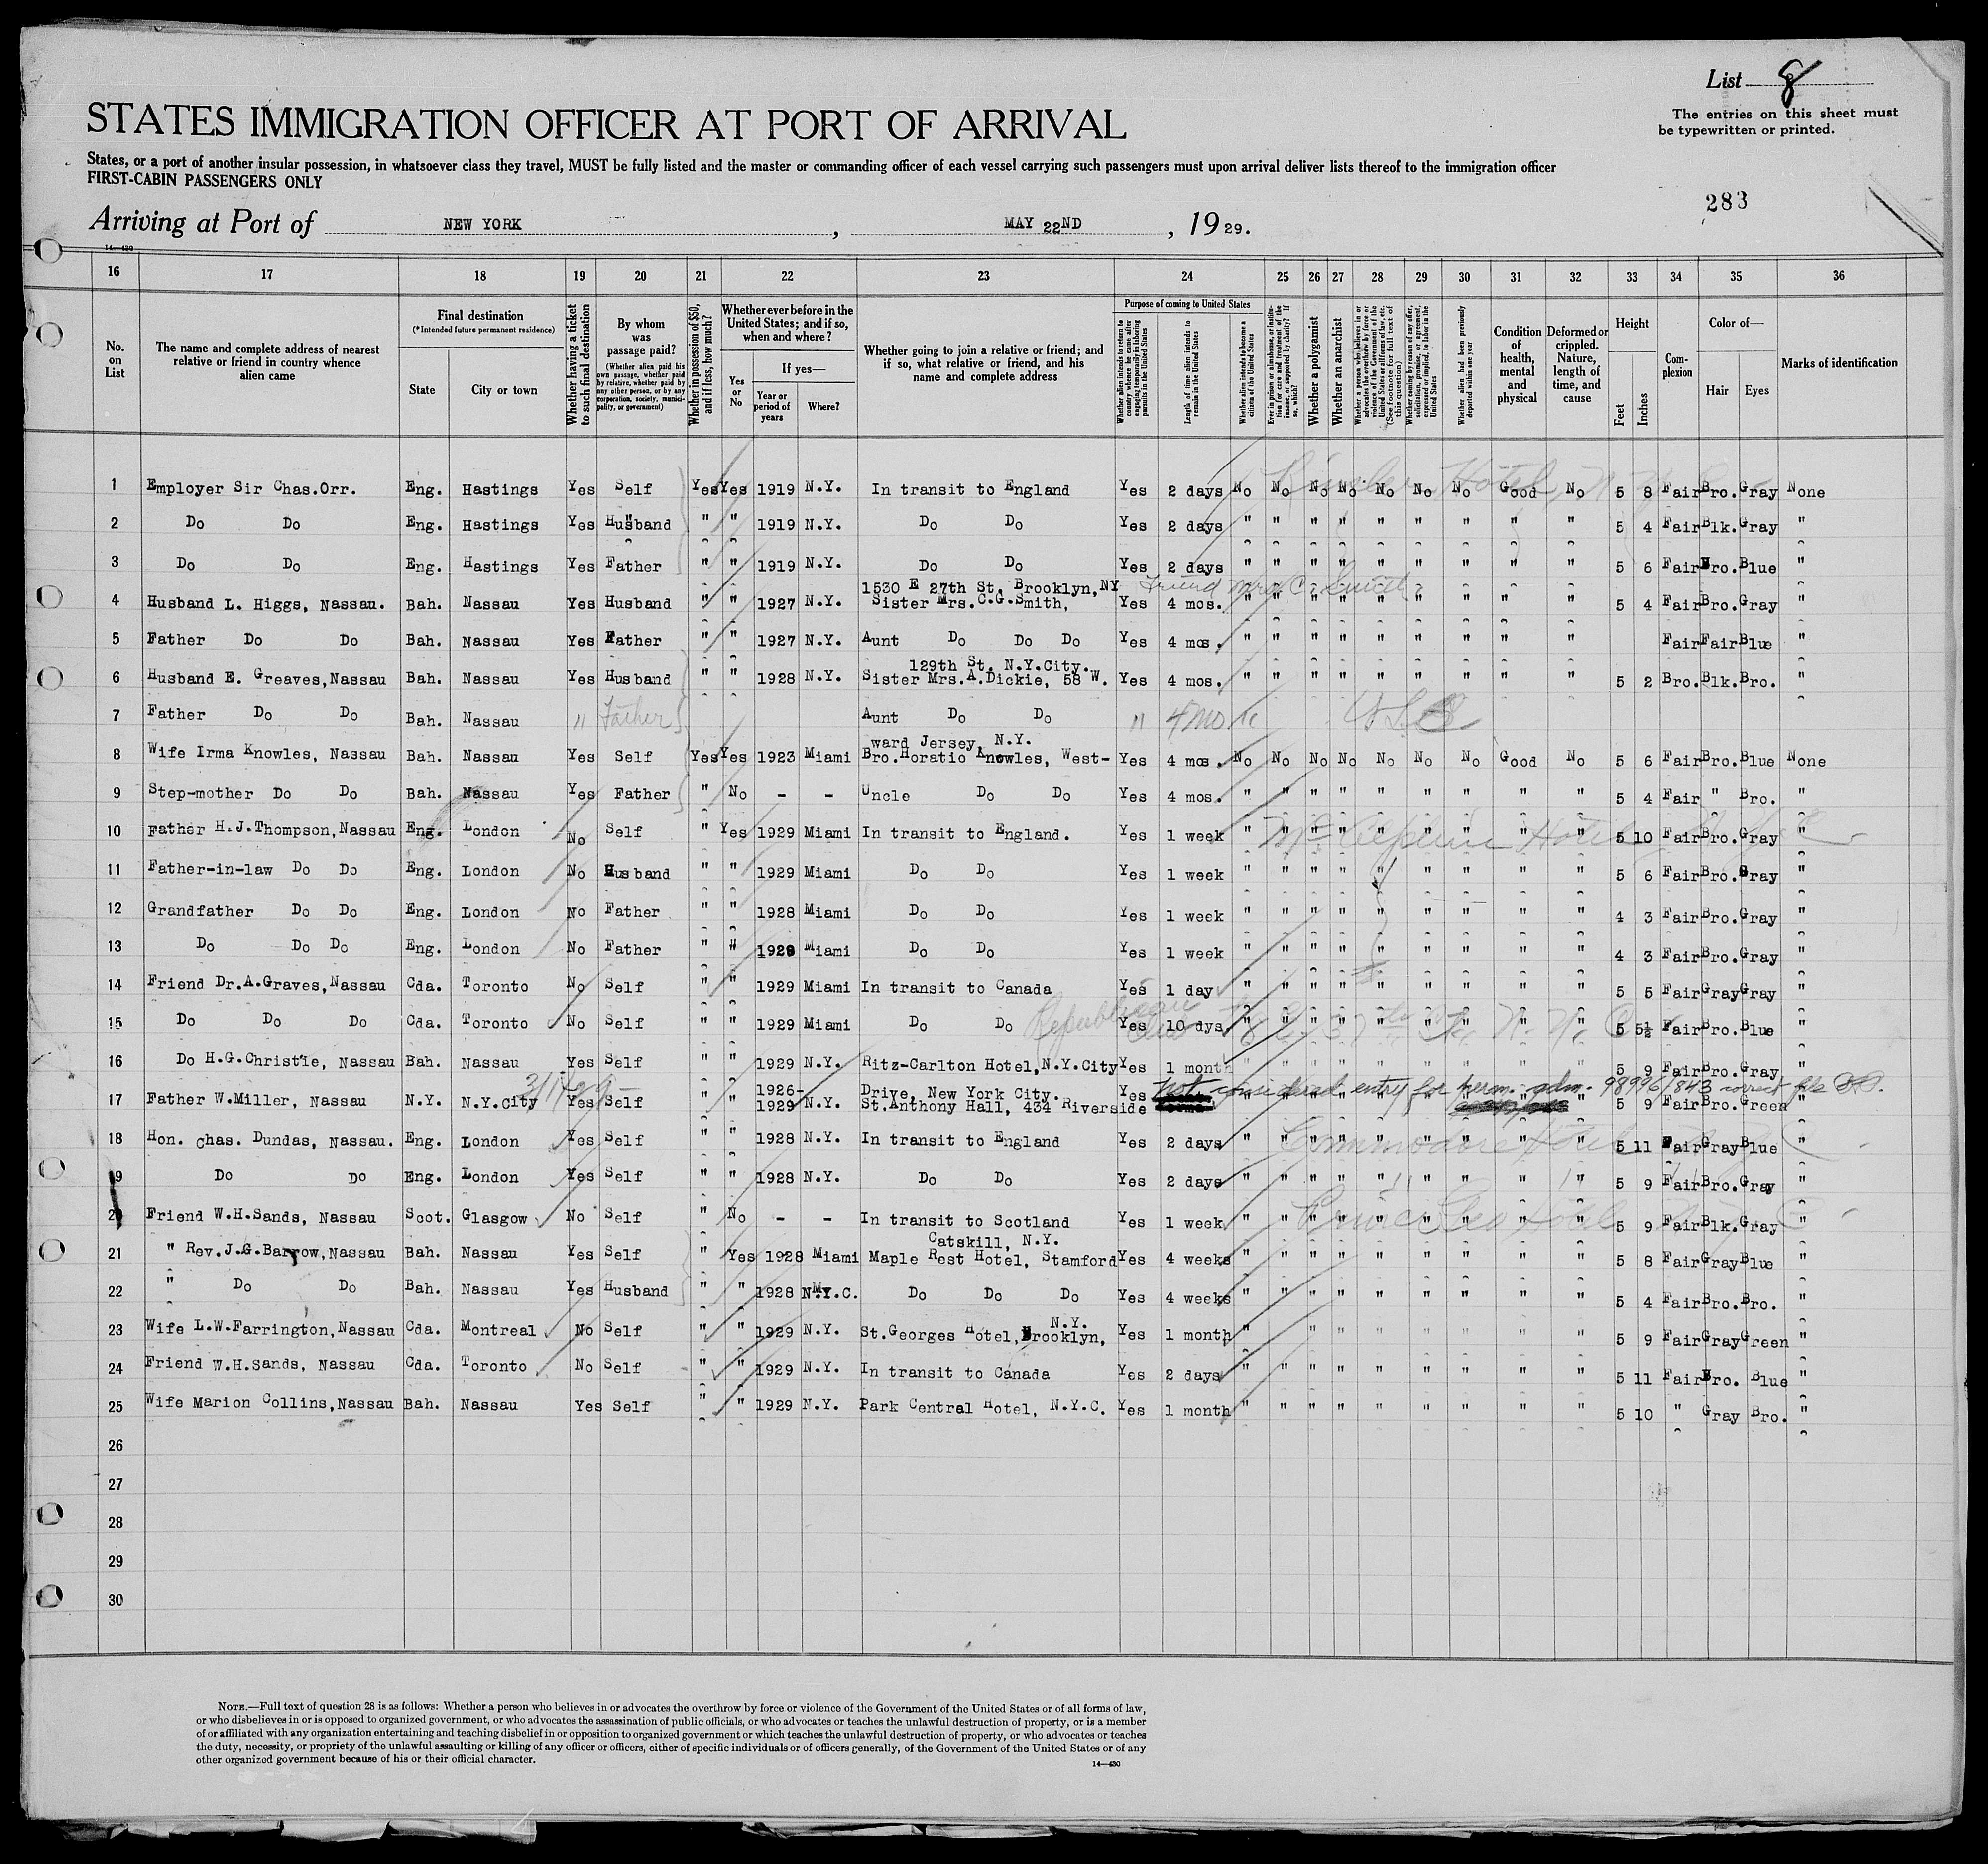 List 8
STATES IMMIGRATION OFFICER AT PORT OF ARRIVAL
The entries on this sheet must
be typewritten or printed.
States, or a port of another insular possession, in whatsoever class they travel, MUST be fully listed and the master or commanding officer of each vessel carrying such passengers must upon arrival deliver lists thereof to the immigration officer
FIRST-CABIN PASSENGERS ONLY
283
Arriving at Port of NEW YORK , MAY 22ND , 1929.
14—430
16 17 18 19 20 21 22 23 24 25 26 27 28 29 30 31 32 33 34 35 36
No. on List
The name and complete address of nearest relative or friend in country whence alien came
Final destination
(*Intended future permanent residence)
State
City or town
Whether having a ticket to such final destination
By whom was passage paid?
(Whether alien paid his own passage, whether paid by relative, whether paid by any other person, or by any corporation, society, municipality, or government)
Whether in possession of $50, and if less, how much?
Whether ever before in the United States; and if so, when and where?
Yes or No
If yes—
Year or period of years
Where?
Whether going to join a relative or friend; and if so, what relative or friend, and his name and complete address
Purpose of coming to United States
Whether alien intends to return to country whence he came after engaging temporarily in laboring pursuits in the United States
Length of time alien intends to remain in the United States
Whether alien intends to become a citizen of the United States
Ever in prison or almshouse, or institution for care and treatment of the insane, or supported by charity? If so, which?
Whether a polygamist
Whether an anarchist
Whether a person who believes in or advocates the overthrow by force or violence of the Government of the United States or all forms of law, etc. (See footnote for full text of this question)
Whether coming by reason of any offer, solicitation, promise, or agreement, expressed or implied, to labor in the United States
Whether alien had been previously deported within one year
Condition of health, mental and physical
Deformed or crippled. Nature, length of time, and cause
Height
Feet
Inches
Complexion
Color of—
Hair
Eyes
Marks of identification
Hotel
1 Employer Sir Chas.Orr. Eng. Hastings Yes Self Yes Yes 1919 N.Y. In transit to England Yes 2 days No No No No No No No Good No 5 8 Fair Bro. Gray None
2 Do Do Eng. Hastings Yes Husband " " 1919 N.Y. Do Do Yes 2 days " " " " " " " " " 5 4 Fair Blk. Gray "
3 Do Do Eng. Hastings Yes Father " " 1919 N.Y. Do Do Yes 2 days " " " " " " " " " 5 6 Fair Bro. Blue "
1530 E 27th St. Brooklyn,NY Friend Mrs C. Smith
4 Husband L. Higgs, Nassau. Bah. Nassau Yes Husband " " 1927 N.Y. Sister Mrs.C.G.Smith, Yes 4 mos. " " " " " " " " " 5 4 Fair Bro. Gray "
5 Father Do Do Bah. Nassau Yes Father " " 1927 N.Y. Aunt Do Do Do Yes 4 mos. " " " " " " " " " Fair Fair Blue "
129th St. N.Y.City.
6 Husband E. Greaves,Nassau Bah. Nassau Yes Husband " " 1928 N.Y. Sister Mrs.A.Dickie, 58 W. Yes 4 mos. " " " " " " " " " 5 2 Bro. Blk. Bro. "
7 Father Do Do Bah. Nassau " Father Aunt Do Do " 4 mo
ward Jersey, N.Y.
8 Wife Irma Knowles, Nassau Bah. Nassau Yes Self Yes Yes 1923 Miami Bro.Horatio Knowles, West- Yes 4 mos. No No No No No No No Good No 5 6 Fair Bro. Blue None
9 Step-mother Do Do Bah. Nassau Yes Father " No - - Uncle Do Do Yes 4 mos. " " " " " " " " " 5 4 Fair " Bro. "
10 Father H.J.Thompson,Nassau Eng. London No Self " Yes 1929 Miami In transit to England. Yes 1 week " " " " " " " " " 5 10 Fair Bro. Gray "
McAlpin Hotel
11 Father-in-law Do Do Eng. London No Husband " " 1929 Miami Do Do Yes 1 week " " " " " " " " 5 6 Fair Bro. Gray "
12 Grandfather Do Do Eng. London No Father " " 1928 Miami Do Do Yes 1 week " " " " " " " " " 4 3 Fair Bro. Gray "
13 Do Do Do Eng. London No Father " " 1928 Miami Do Do Yes 1 week " " " " " " " " " 4 3 Fair Bro. Gray "
14 Friend Dr.A.Graves,Nassau Cda. Toronto No Self " " 1929 Miami In transit to Canada Yes 1 day " " " " " " " " " 5 5 Fair Gray Gray "
Republican Club
15 Do Do Do Cda. Toronto No Self " " 1929 Miami Do Do Yes 10 dys. " " " " " " " " " 5 5½ Fair Bro. Blue "
16 Do H.G.Christie, Nassau Bah. Nassau Yes Self " " 1929 N.Y. Ritz-Carlton Hotel,N.Y.City Yes 1 month " " " " " " " " " 5 9 Fair Bro. Gray "
1926- Drive, New York City. not considered entry for perm. adm. 98996/843 correct file
17 Father W.Miller, Nassau N.Y. N.Y.City Yes Self " " 1929 N.Y. St.Anthony Hall, 434 Riverside Yes 5 9 Fair Bro. Green "
18 Hon. Chas. Dundas, Nassau. Eng. London Yes Self " " 1928 N.Y. In transit to England Yes 2 days " " " " " " " " " 5 11 Fair Gray Blue "
Commodore Hotel
19 Do Do Eng. London Yes Self " " 1928 N.Y. Do Do Yes 2 days " " " " " " " " " 5 9 Fair Bro. Gray "
20 Friend W.H.Sands, Nassau Scot. Glasgow No Self " No - - In transit to Scotland Yes 1 week " " " " " " " " " 5 9 Fair Blk. Gray "
Prince Geo Hotel
Catskill, N.Y.
21 " Rev.J.G.Barrow,Nassau Bah. Nassau Yes Self " Yes 1928 Miami Maple Rest Hotel, Stamford Yes 4 weeks " " " " " " " " " 5 8 Fair Gray Blue "
22 " Do Do Bah. Nassau Yes Husband " " 1928 N.Y.C. Do Do Do Yes 4 weeks " " " " " " " " " 5 4 Fair Bro. Bro. "
N.Y.
23 Wife L.W.Farrington,Nassau Cda. Montreal No Self " " 1929 N.Y. St.Georges Hotel,Brooklyn, Yes 1 month " " " " " " " " " 5 9 Fair Gray Green "
24 Friend W.H.Sands, Nassau Cda. Toronto No Self " " 1929 N.Y. In transit to Canada Yes 2 days " " " " " " " " " 5 11 Fair Bro. Blue "
25 Wife Marion Collins,Nassau Bah. Nassau Yes Self " " 1929 N.Y. Park Central Hotel, N.Y.C. Yes 1 month " " " " " " " " " 5 10 " Gray Bro. "
26
27
28
29
30
NOTE.—Full text of question 28 is as follows: Whether a person who believes in or advocates the overthrow by force or violence of the Government of the United States or of all forms of law,
or who disbelieves in or is opposed to organized government, or who advocates the assassination of public officials, or who advocates or teaches the unlawful destruction of property, or is a member
of or affiliated with any organization entertaining and teaching disbelief in or opposition to organized government or which teaches the unlawful destruction of property, or who advocates or teaches
the duty, necessity, or propriety of the unlawful assaulting or killing of any officer or officers, either of specific individuals or of officers generally, of the Government of the United States or of any
other organized government because of his or their official character.
14—430